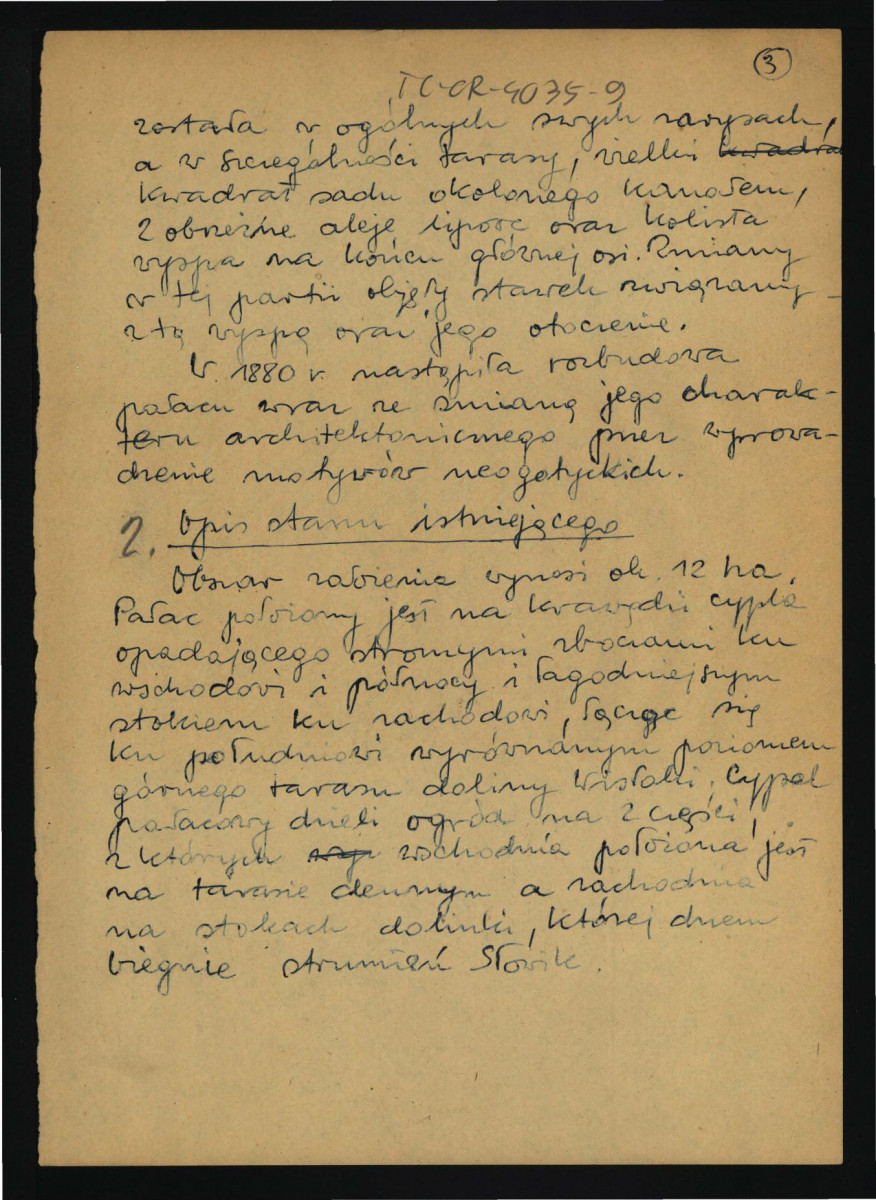 3
TC-OR-4035-9
została w ogólnych swych zarysach,
a w szczególności tarasy, wielki kwadrat
kwadrat sadu okolonego kanałem,
2 obrzeżne aleje lipowe oraz kolista
wyspa na końcu głównej osi. Zmiany
w tej partii objęły stawek związany
z tą wyspą oraz jego otoczenie.
W 1880 r. nastąpiła rozbudowa
pałacu wraz ze zmianą jego charak-
teru architektonicznego przez wprowa-
dzenie motywów neogotyckich.
2. Opis stanu istniejącego
Obszar założenia wynosi ok. 12 ha.
Pałac położony jest na krawędzi cypla
opadającego stromymi zboczami ku
wschodowi i północy i łagodniejszym
stokiem ku zachodowi, łącząc się
ku południowi wyrównanym poziomem
górnego tarasu doliny Wisłoki. Cypel
pałacowy dzieli ogród na 2 części,
z których wschodnia położona jest
na tarasie dennym a zachodnia
na stokach dolinki, której dnem
biegnie strumień Słowik.